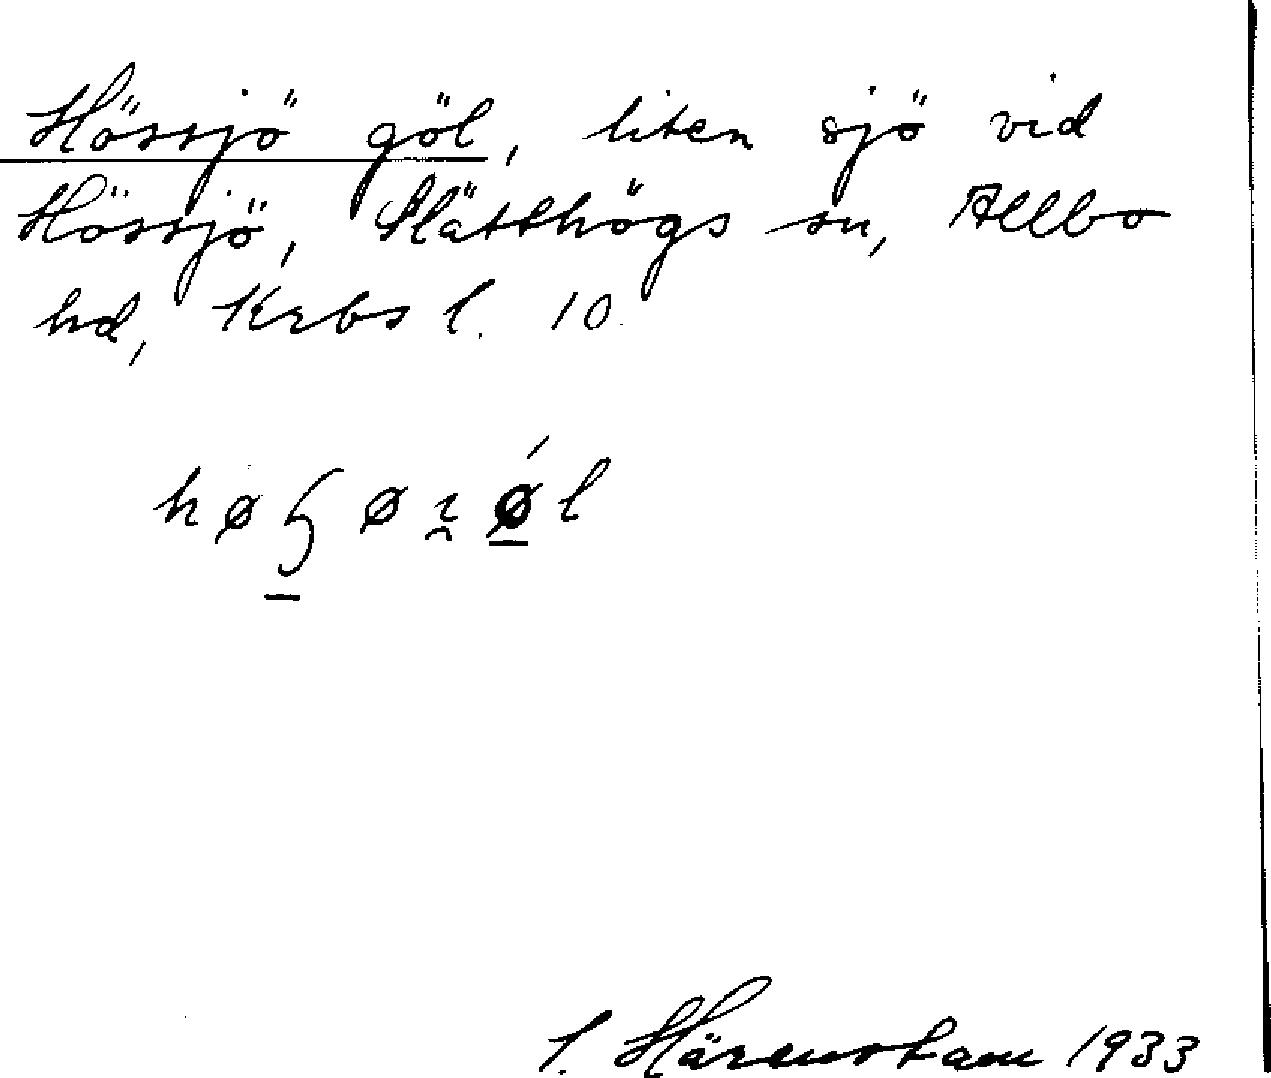 Hössjö göl, liten sjö vid
Hössjö, Slätthögs sn, Allbo
hd, Krbs l. 10
S. Härenstam 1933